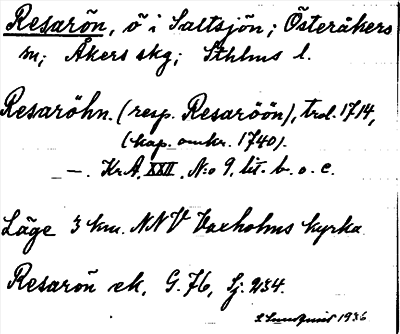 Resarön, ö i Saltsjön; Österåkers
sn; Åkers skg; Sthlms l.
Resaröhn. (resp. Resaröön), trol. 1714,
(kop. omkr. 1740).
—. KrA, XXII, N:o 9, lit. b. o. c.
Läge 3 km. NNV Vaxholms kyrka
Resarön ek, G. 76, Lj. 234.
1936